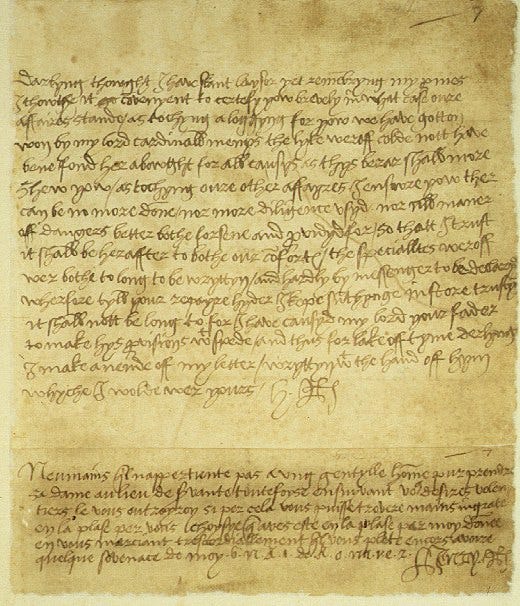 Darlyng thowght I have skant laysor yet remembryng my promes
I thowthe it co̅venient to certefy yow brevly in what case oure
affaires stande / as tochyng a loggyng for yow we have gotton
won by my lord cardinalls menys the lyke weroff colde nott have
bene fond her abowght for all causys as thys berar shall more
shew yow / as tochyng oure other affayres I ensure yow ther
can be no more done / nor more diligence usyd nor all maner
off dangers better bothe forsene and for / so thatt I trust
it shalbe heraffter to bothe our co̅forte / the specialltes weroff
wer bothe to long to be wryttyn / and hardly by messenger to be declaryd
wherfore tyll your repayre hyder I kepe su̅thynge in store
it shall nott be long to / for I have causyd my lord your fader
to make hys provisions wt spede / and thus for lake off tyme derlyng
I make a nende off my letter / wryttyn wt the hand off hym
whyche I wolde wer yours / H. R
Neumains kil nappertiente pas a ung gentylle home pur prendre
sa dame au lieu de servante toutefoise ensuivant vos desires volen
tiers le vous outroyroy si per cela vous puisse trevere mains ingrate
en la plase per vous aves este en la plase par moy donee
en vous merciant trescordiallement kil vous plete encors avoire
quelque sovenace de moy
Henry R